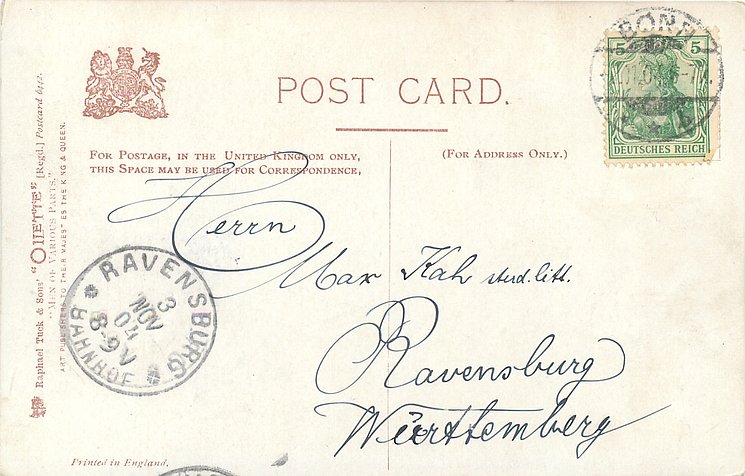 POST CARD.
FOR POSTAGE, IN THE UNITED KINGDOM ONLY,
THIS SPACE MAY BE USED FOR CORRESPONDENCE,
(FOR ADDRESS ONLY.)
BONN
5 5
DEUTSCHES REICH
Herrn
Max Kah stud. litt.
Ravensburg
Württemberg
RAVENSBURG
3
NOV
04
8-9 V
BAHNHOF
Raphael Tuck & Sons' "OILETTE" [Regd.] Postcard 6442.
"MEN OF VARIOUS PARTS."
ART PUBLISHERS TO THEIR MAJESTIES THE KING & QUEEN.
Printed in England.